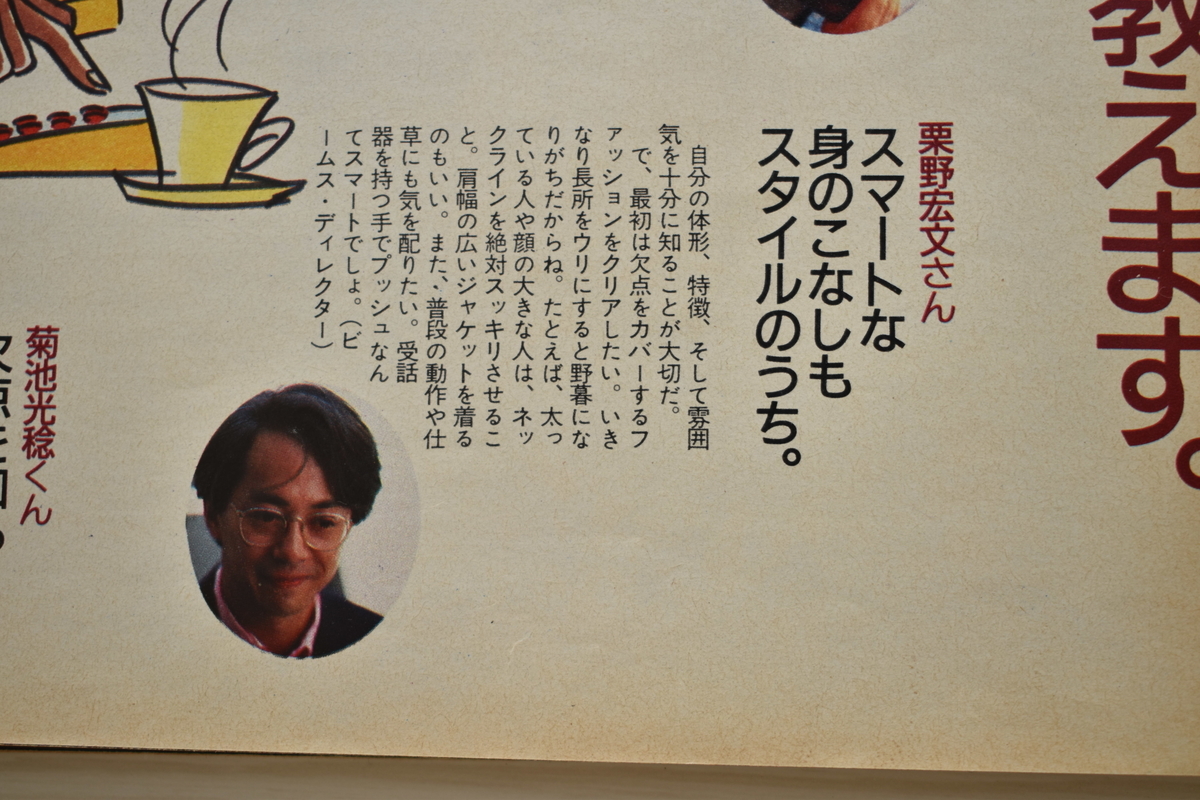 教えます。
栗野宏文さん
スマートな
身のこなしも
スタイルのうち。
自分の体形、特徴、そして雰囲
気を十分に知ることが大切だ。
で、最初は欠点をカバーするフ
ァッションをクリアしたい。いき
なり長所をウリにすると野暮にな
りがちだからね。たとえば、太っ
ている人や顔の大きな人は、ネッ
クラインを絶対スッキリさせるこ
と。肩幅の広いジャケットを着る
のもいい。また、普段の動作や仕
草にも気を配りたい。受話
器を持つ手でプッシュなん
てスマートでしょ。（ビ
ームス・ディレクター）
菊池光稔くん